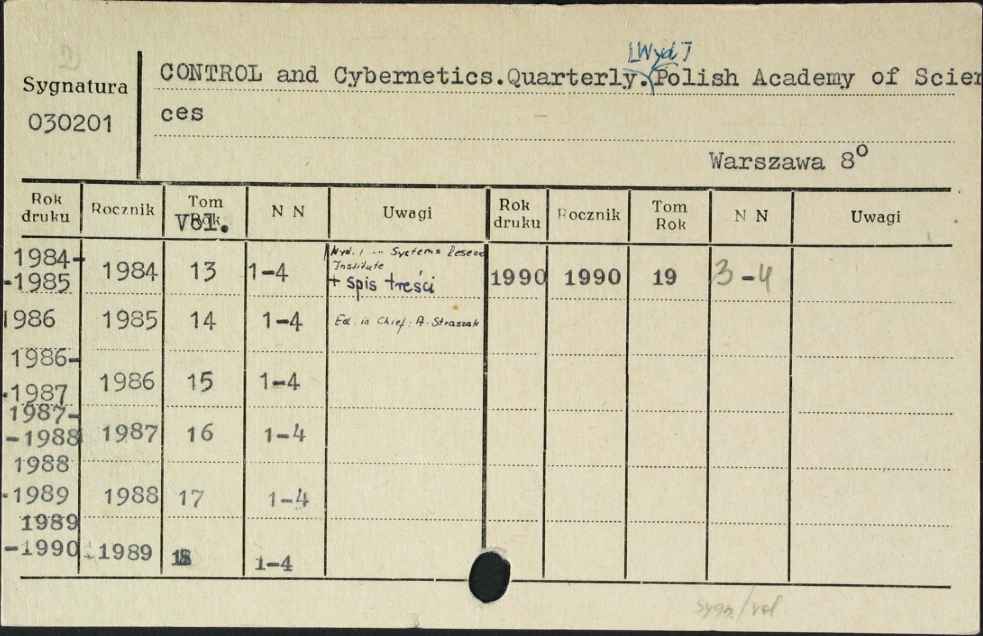 2)
[Wyd]
Sygnatura
030201
CONTROL and Cybernetics.Quarterly.Polish Academy of Scien
ces
Warszawa 8º
Rok druku Rocznik Tom Rok Vol. N N Uwagi Rok druku Rocznik Tom Rok N N Uwagi
1984- -1985 1984 13 1-4 Wyd. Systems Institute + spis treści 1990 1990 19 3-4
1986 1985 14 1-4 Ed. in Chief: A. Straszak
1986- -1987 1986 15 1-4
1987- -1988 1987 16 1-4
1988 -1989 1988 17 1-4
1989 -1990 1989 18 1-4
sygn/vol